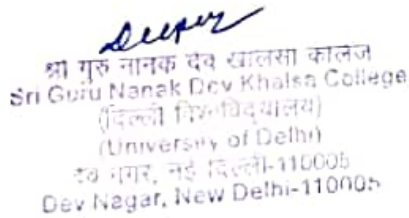 श्री गुरु नानक देव खालसा कॉलेज
Sri Guru Nanak Dev Khalsa College
(दिल्ली विश्वविद्यालय)
(University of Delhi)
देव नगर, नई दिल्ली-110005
Dev Nagar, New Delhi-110005